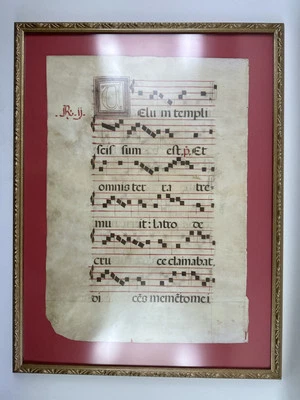 R. ij.
VElu m templi
scis sum est. p. Et
omnis ter ra tre
mu it: latro de
cru ce clamabat
di cēs memēto mei